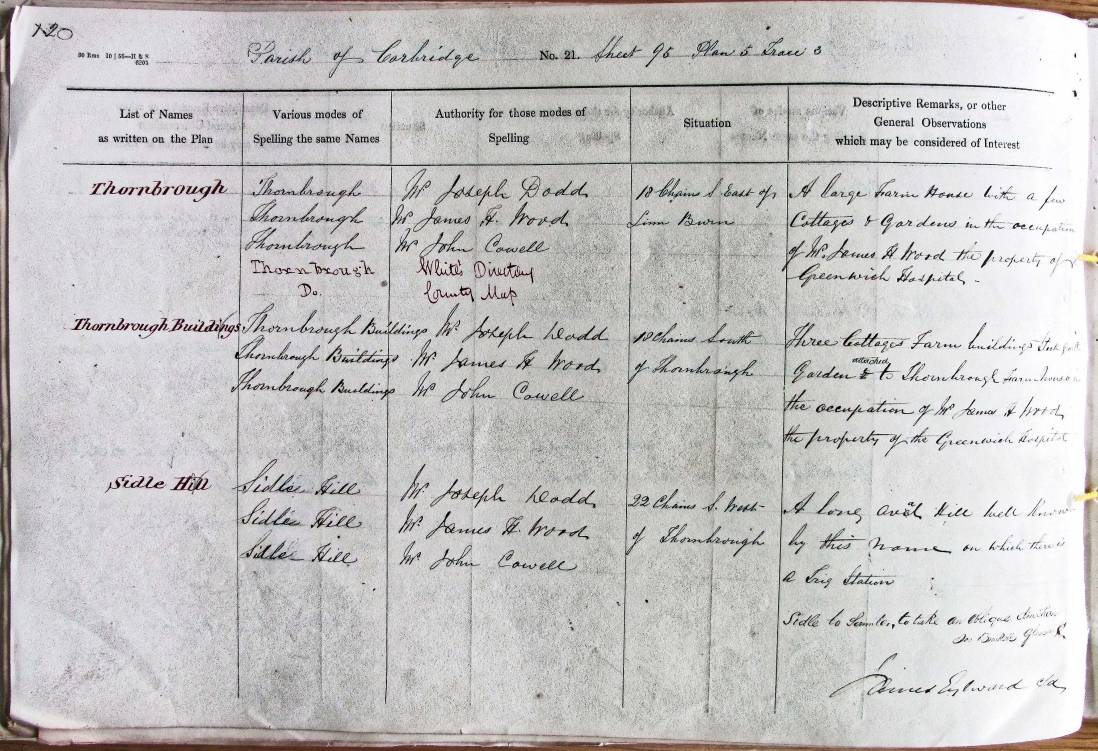 120
Parish of Corbridge No. 21. Sheet 95 Plan 5 Trace 3
List of Names
as written on the Plan
Various modes of
Spelling the same Names
Authority for those modes of
Spelling
Situation
Descriptive Remarks, or other
General Observations
which may be considered of Interest
Thornbrough
Thornbrough
Thornbrough
Thornbrough
Thornbrough
Do.
Mr. Joseph Dodd
Mr James H. Wood
Mr John Cowell
White's Directory
County Map
18 Chains S. East of
Linn Burn
A large Farm House with a few
Cottages & Gardens in the occupation
of Mr. James H Wood the property of
Greenwich Hospital.
Thornbrough Buildings
Thornbrough Buildings
Thornbrough Buildings
Thornbrough Buildings
Mr. Joseph Dodd
Mr. James H Wood
Mr John Cowell
10 Chains South
of Thornbrough
Three Cottages Farm buildings
Garden attached to Thornbrough Farm house
the occupation of Mr James H Wood,
the property of the Greenwich Hospital
Sidle Hill
Sidle Hill
Sidle Hill
Sidle Hill
Mr. Joseph Dodd
Mr. James H. Wood
Mr John Cowell
22 Chains S. West
of Thornbrough
A long Hill well Known
by this name on which there is
a Trig Station
Sidle to to take an oblique direction
James Eylward